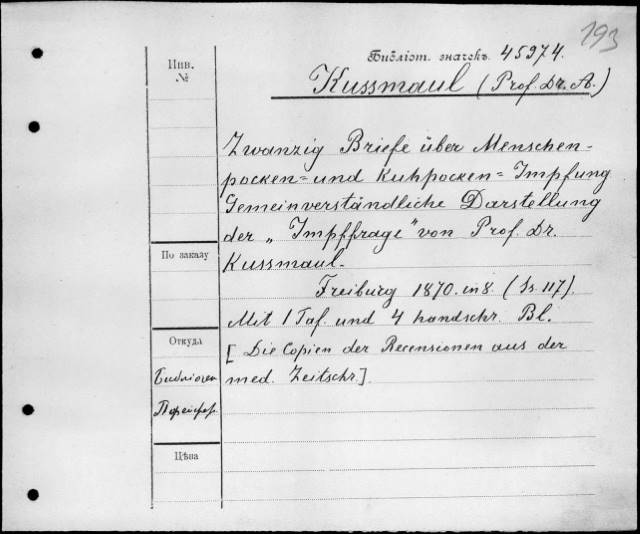 193
Библіот. значекъ. 45974.
Инв.
№
Kussmaul (Prof. Dr. A.)
Zwanzig Briefe über Menschen-
pocken= und Kuhpocken= Impfung
Gemeinverständliche Darstellung
der „Impffrage" von Prof. Dr.
По заказу
Kussmaul.
Freiburg 1870. in 8. (Ss. 117).
Mit 1 Taf. und 4 handschr. Bl.
Откуда
[Die Copien der Recensionen aus der
Библіотек
med. Zeitschr.].
Цѣна